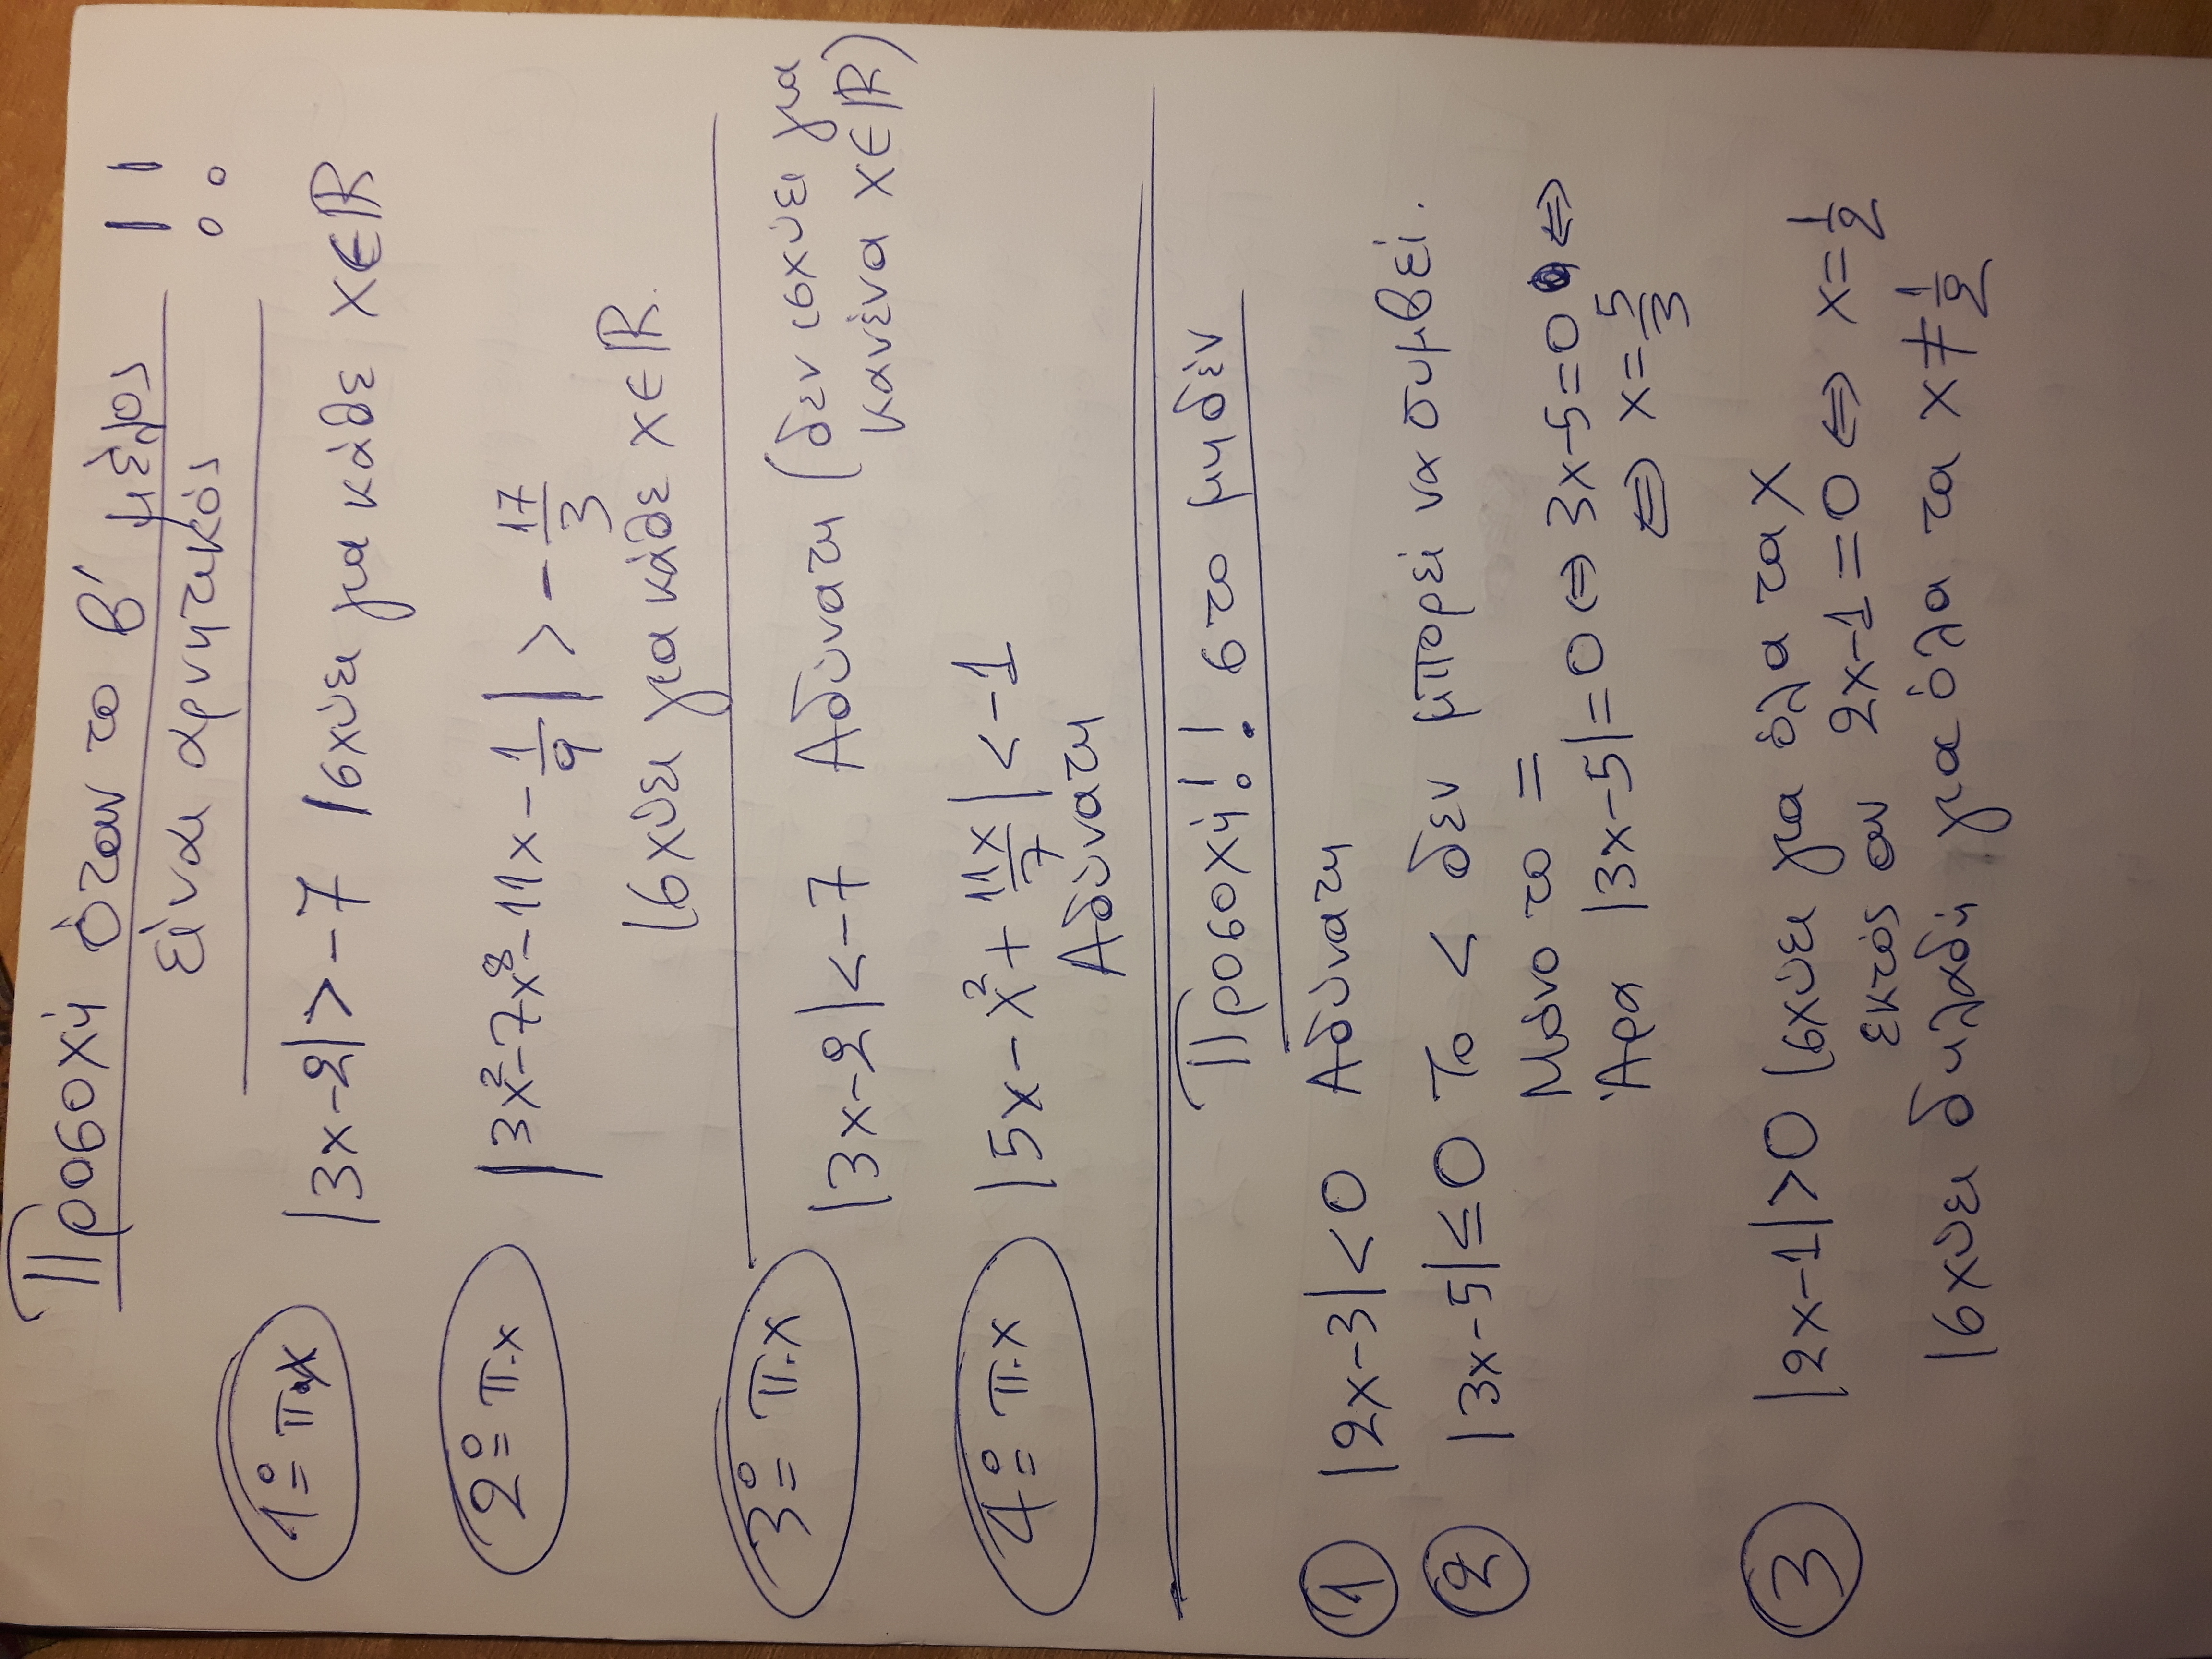 Προσοχή όταν το β' μέλος !!
είναι αρνητικός
1ο π.χ |3x-2|>-7 Ισχύει για κάθε x∈ℝ
2ο π.χ |3x²-7x⁸-11x-1/9|>-17/3
Ισχύει για κάθε x∈ℝ.
3ο π.χ |3x-2|<-7 Αδύνατη (δεν ισχύει για
κανένα x∈ℝ)
4ο π.χ |5x-x²+11x/7|<-1
Αδύνατη
Προσοχή!! στο μηδέν
1 |2x-3|<0 Αδύνατη
2 |3x-5|≤0 Το < δεν μπορεί να συμβεί.
Μόνο το =
Άρα |3x-5|=0⇔3x-5=0⇔
⇔x=5/3
3 |2x-1|>0 Ισχύει για όλα τα x
εκτός αν 2x-1=0⇔x=1/2
Ισχύει δηλαδή για όλα τα x≠1/2